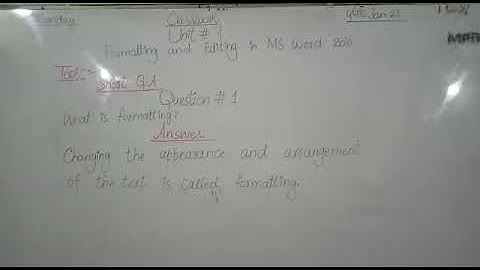 Monday Classwork 4th Jan 21
Unit # 1
Formatting and Editing in MS Word 2010
Topic:-
Short Q/A
Question # 1
What is formatting?
Answer
Changing the appearance and arrangement
of the text is called formatting.